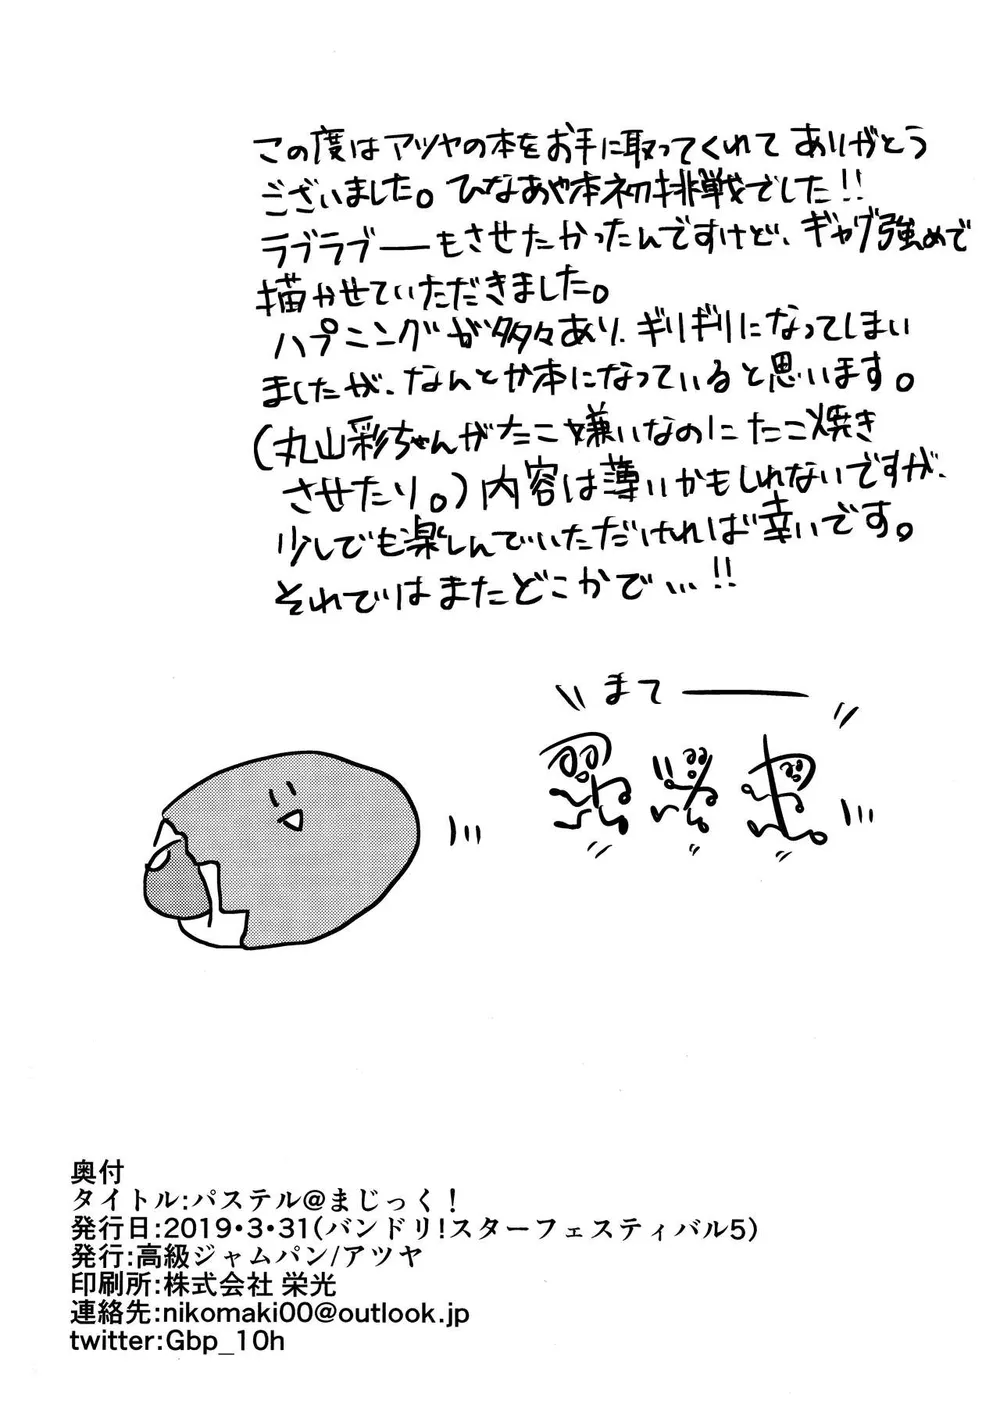 この度はアツヤの本をお手に取ってくれて ありがとう
ございました。ひなあや本初挑戦でした!!
ラブラブーーもさせたかったんですけど、ギャグ強めで
描かせていただきました。
ハプニングが多々あり、ギリギリになってしまい
ましたが、なんとか本になっていると思います。
(丸山彩ちゃんがたこ嫌いなのにたこ焼き
させたり。)内容は薄いかもしれないですが、
少しでも楽しんでいただければ幸いです。
それではまたどこかで…!!
まてーー
奥付
タイトル:パステル@まじっく!
発行日:2019・3・31(バンドリ!スターフェスティバル5)
発行:高級ジャムパン/アツヤ
印刷所:株式会社 栄光
連絡先:nikomaki00@outlook.jp
twitter:Gbp_10h